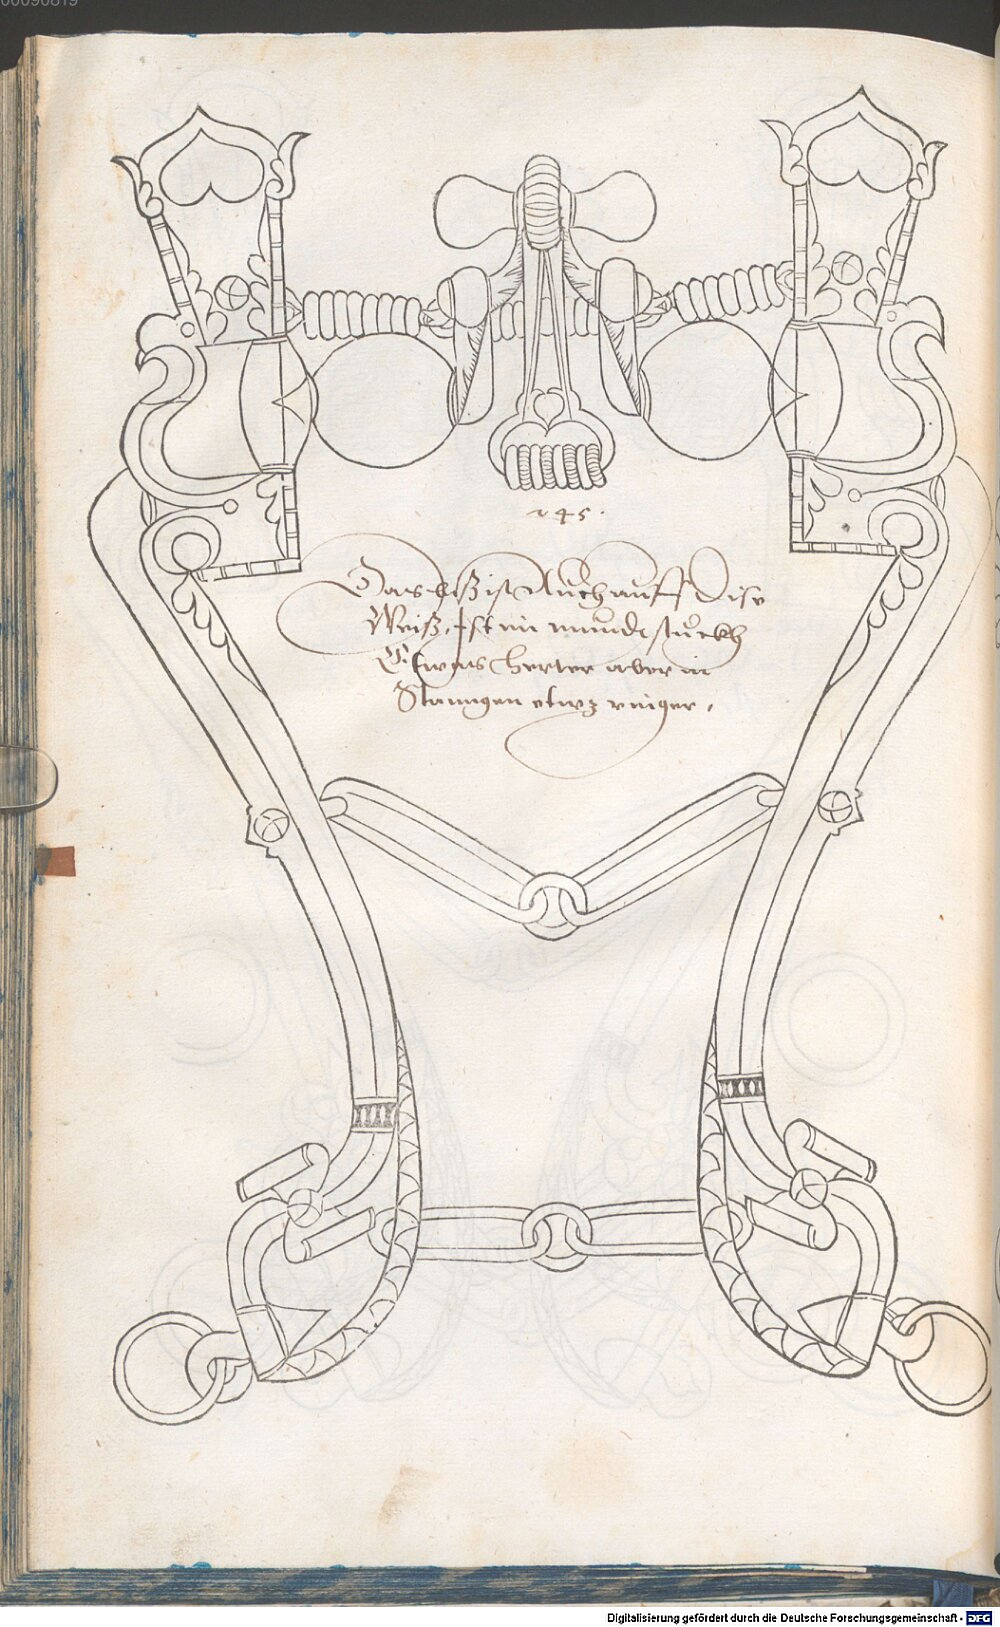 00090819
245.
Das biß ist Auch auff Dise
Weiß, Ist im mundstuckh
Etwas herter aber in
Stanngen etwz ringer.
Digitalisierung gefördert durch die Deutsche Forschungsgemeinschaft - DFG